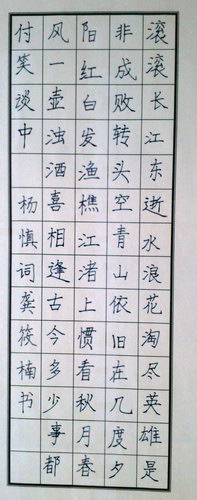 滚滚长江东逝水浪花淘尽英雄是
非成败转头空青山依旧在几度夕
阳红白发渔樵江渚上惯看秋月春
风一壶浊酒喜相逢古今多少事都
付笑谈中 杨慎词龚筱楠书